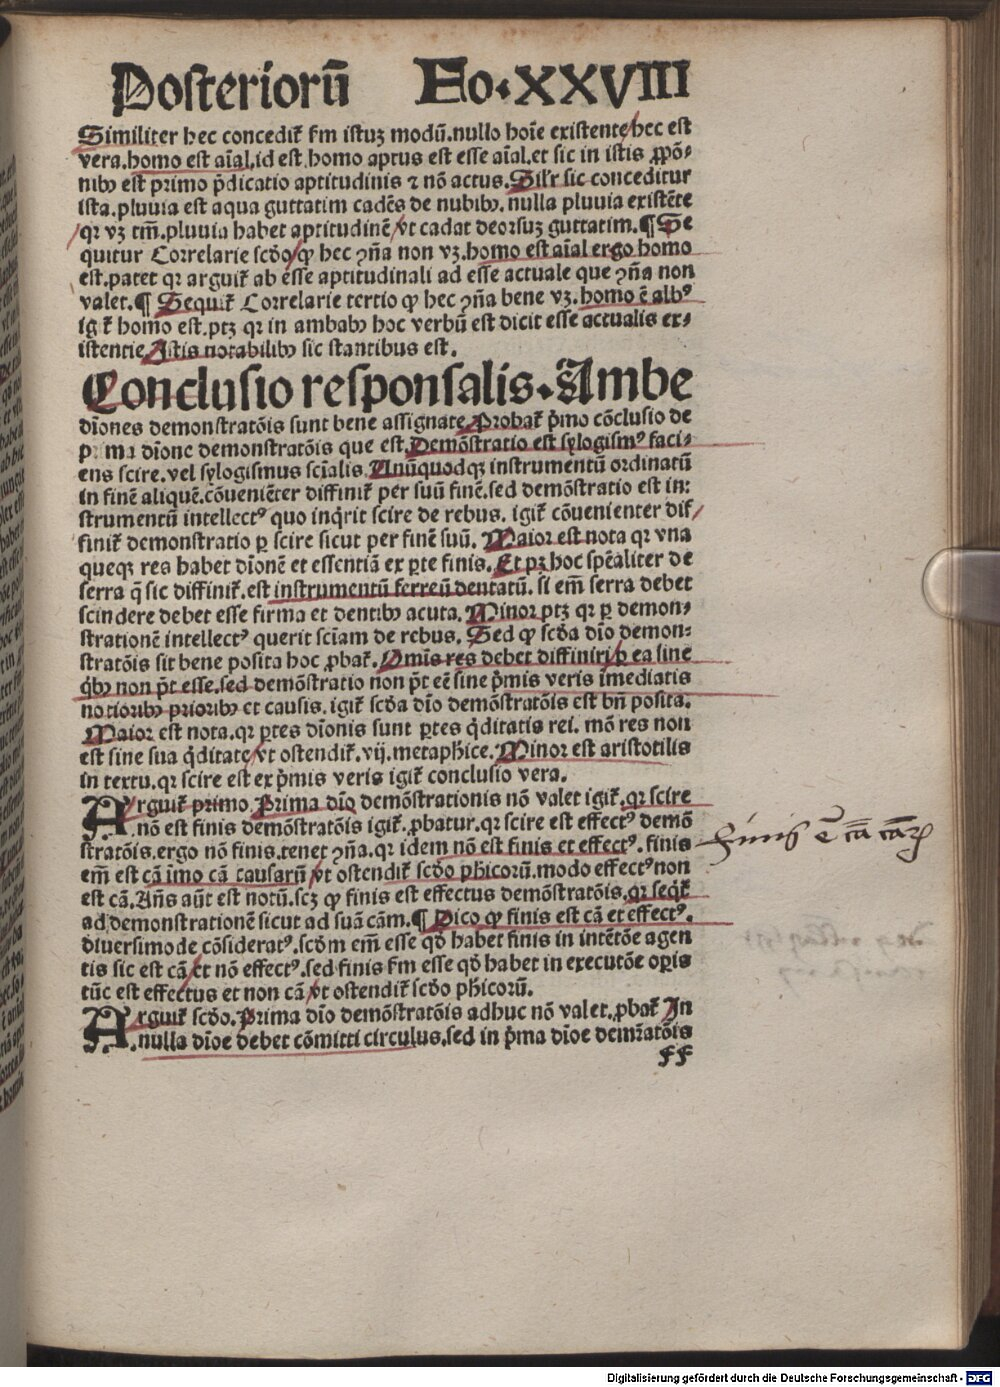 Posteriorū Fo.XXVIII
Similiter hec concedit̄ fm istuȝ modū.nullo hoīe existente/hec est
vera.homo est aīal.id est.homo aptus est esse aīal.et sic in istis ꝓpō⸗
nibꝰ est primo p̄dicatio aptitudinis ⁊ nō actus.Sil'r sic conceditur
ista.pluuia est aqua guttatim cadēs de nubibꝰ.nulla pluuia existēte
qr vȝ tm̄.pluuia habet aptitudinē/vt cadat deorsuȝ guttatim.¶Se
quitur Correlarie scd̄o/ꝙ hec ↄ̄na non vȝ.homo est aīal ergo homo
est.patet qr arguit̄ ab esse aptitudinali ad esse actuale que ↄ̄na non
valet.¶ Sequit̄ Correlarie tertio ꝙ hec ↄ̄na bene vȝ.homo ē albꝰ
igit̄ homo est.ptȝ qr in ambabꝰ hoc verbū est dicit esse actualis ex⸗
istentie Istis notabilibꝰ sic stantibus est.
Conclusio responsalis.Ambe
dīones demonstratōis sunt bene assignate.Probat̄ p̄mo cōclusio de
prima dīone demonstratōis que est.Demōstratio est sylogismꝰ faci⸗
ens scire.vel sylogismus scīalis.Unūquodqȝ instrumentū ordinatū
in finē aliquē.cōueniēter diffinit̄ per suū finē.sed demōstratio est in⸗
strumentū intellectꝰ quo inq̄rit scire de rebus. igit̄ cōuenienter dif
finit̄ demonstratio ꝑ scire sicut per finē suū. Maior est nota qr vna
queqȝ res habet dīonē et essentiā ex ꝑte finis. Et pȝ hoc spēaliter de
serra q̄ sic diffinit̄.est instrumentū ferreū dentatū. si em̄ serra debet
scindere debet esse firma et dentibꝰ acuta. Minor ptȝ qr ꝑ demon⸗
strationē intellectꝰ querit scīam de rebus. Sed ꝙ scd̄a dīo demon⸗
stratōis sit bene posita hoc ꝓbat̄.Omīs res debet diffiniri/ꝑ ea sine
q̄bꝰ non p̄t esse.sed demōstratio non p̄t eē sine p̄mis veris īmediatis
notioribꝰ prioribꝰ et causis. igit̄ scd̄a dīo demōstratōis est bn̄ posita.
Maior est nota.qr ꝑtes dīonis sunt ꝑtes q̄ditatis rei. mō res non
est sine sua q̄ditate/vt ostendit̄.vij.metaph̄ice. Minor est aristotilis
in textu.qr scire est ex p̄mis veris igit̄ conclusio vera.
Arguit̄ primo.Prima dīo demōstrationis nō valet igit̄.qr scire
nō est finis demōstratōis igit̄.ꝓbatur.qr scire est effectꝰ demō
stratōis.ergo nō finis.tenet ↄ̄na.qr idem nō est finis et effectꝰ. finis
em̄ est cā īmo cā causarū /vt ostendit̄ scd̄o ph̄icorū.modo effectꝰ non
est cā.An̄s aūt est notū.scȝ ꝙ finis est effectus demōstratōis.qr seqt̄
ad demonstrationē sicut ad suā cām.¶ Dico ꝙ finis est cā et effectꝰ.
diuersimode cōsideratꝰ.scd̄m em̄ esse qd̄ habet finis in intētōe agen
tis sic est cā/et nō effectꝰ.sed finis fm esse qd̄ habet in executōe oꝑis
tūc est effectus et non cā /vt ostendit̄ scd̄o ph̄icorū.
Arguit̄ scd̄o.Prima dīo demōstratōis adhuc nō valet.ꝓbat̄ In
nulla dīoe debet cōmitti circulus.sed in p̄ma dīoe demr̄atōis
ff
finis ē cā cāꝝ
Digitalisierung gefördert durch die Deutsche Forschungsgemeinschaft - DFG